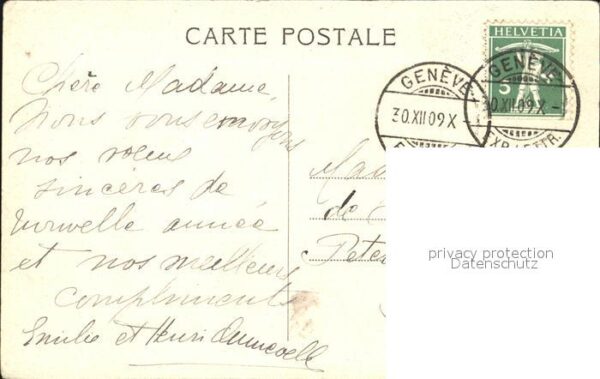 CARTE POSTALE
HELVETIA
5
GENÈVE
30.XII.09.X-
EXP. LETTR.
GENÈVE
30.XII.09.X-
Chère Madame,
Nous vous envoyons
nos voeux
sincères de
nouvelle année
et nos meilleurs
compliments
Emilie et Henri
de
Peter
privacy protection
Datenschutz